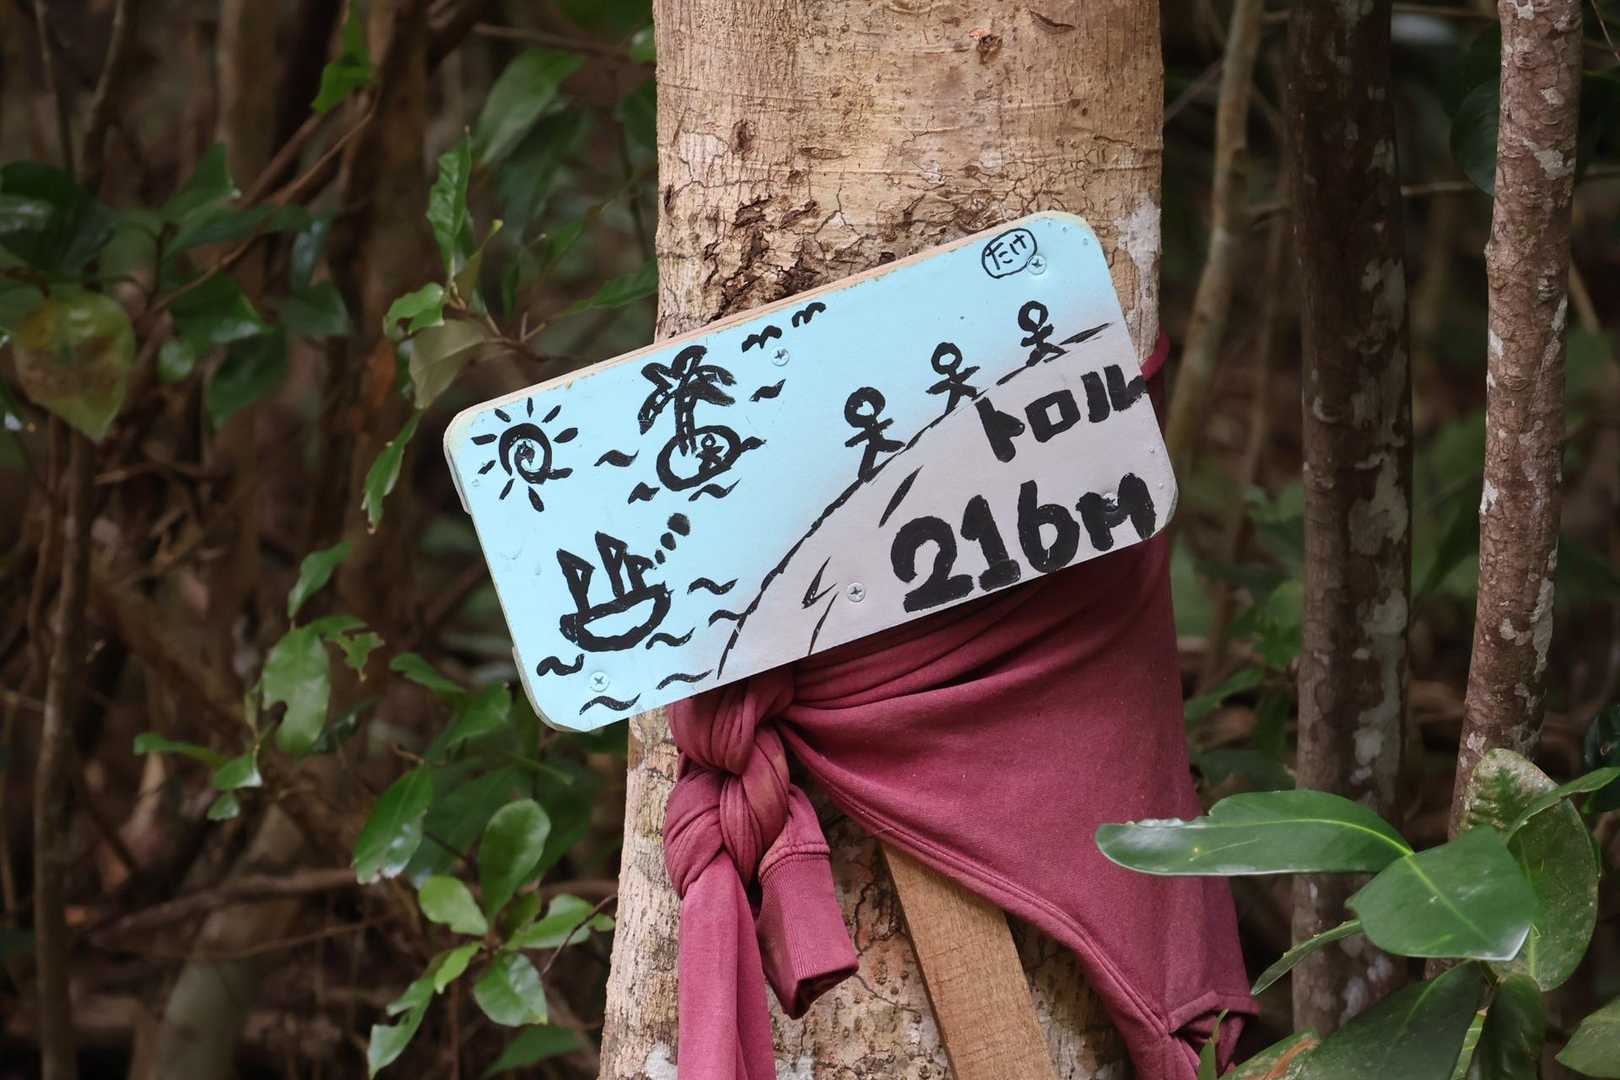 たけ
トロル
216m